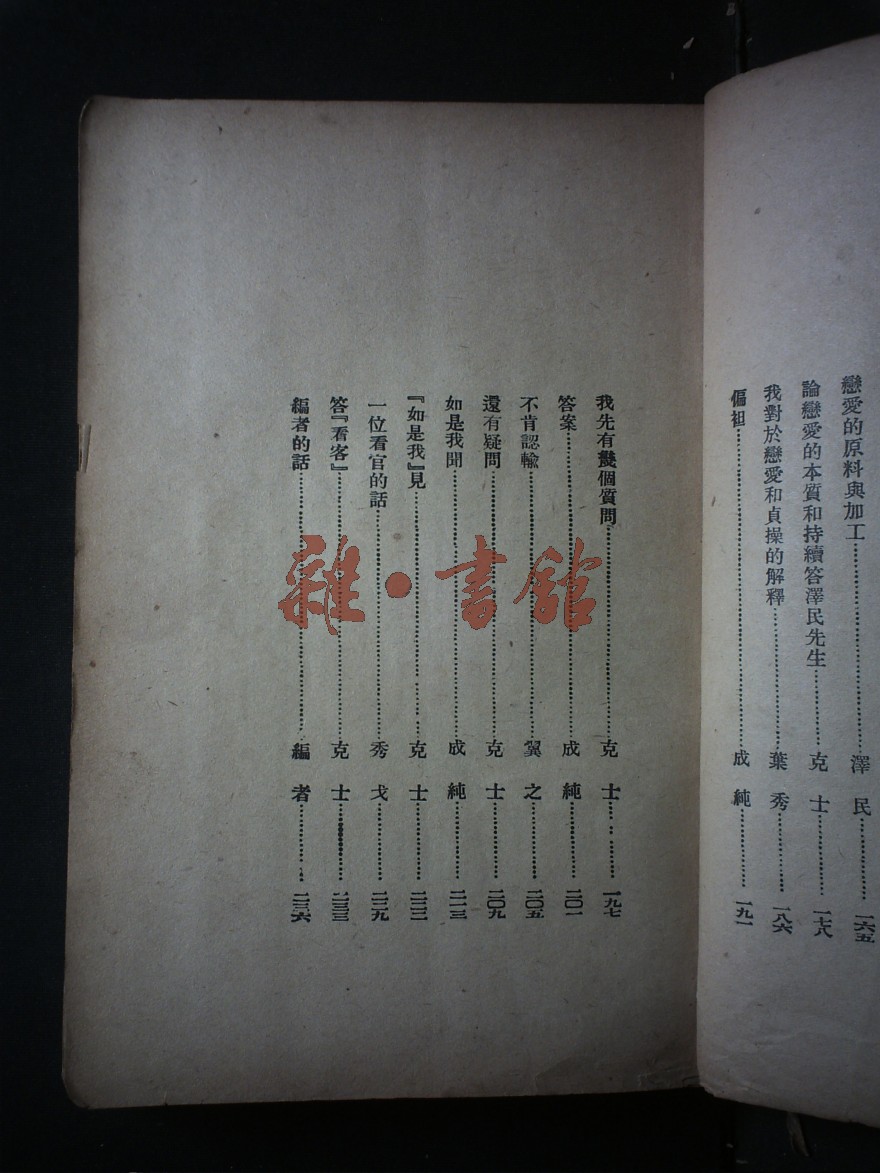 戀愛的原料與加工……澤民……一六五
論戀愛的本質和持續答澤民先生……克士……一七八
我對於戀愛和貞操的解釋……葉秀……一八六
偏袒……成純……一九一
我先有幾個質問……克士……一九七
答案……成純……二〇一
不肯認輸……翼之……二〇五
還有疑問……克士……二〇九
如是我聞……成純……二一三
『如是我』見……克士……二二二
一位看官的話……秀戈……二二九
答『看客』……克士……二三三
編者的話……編者……二三六
雜·書館